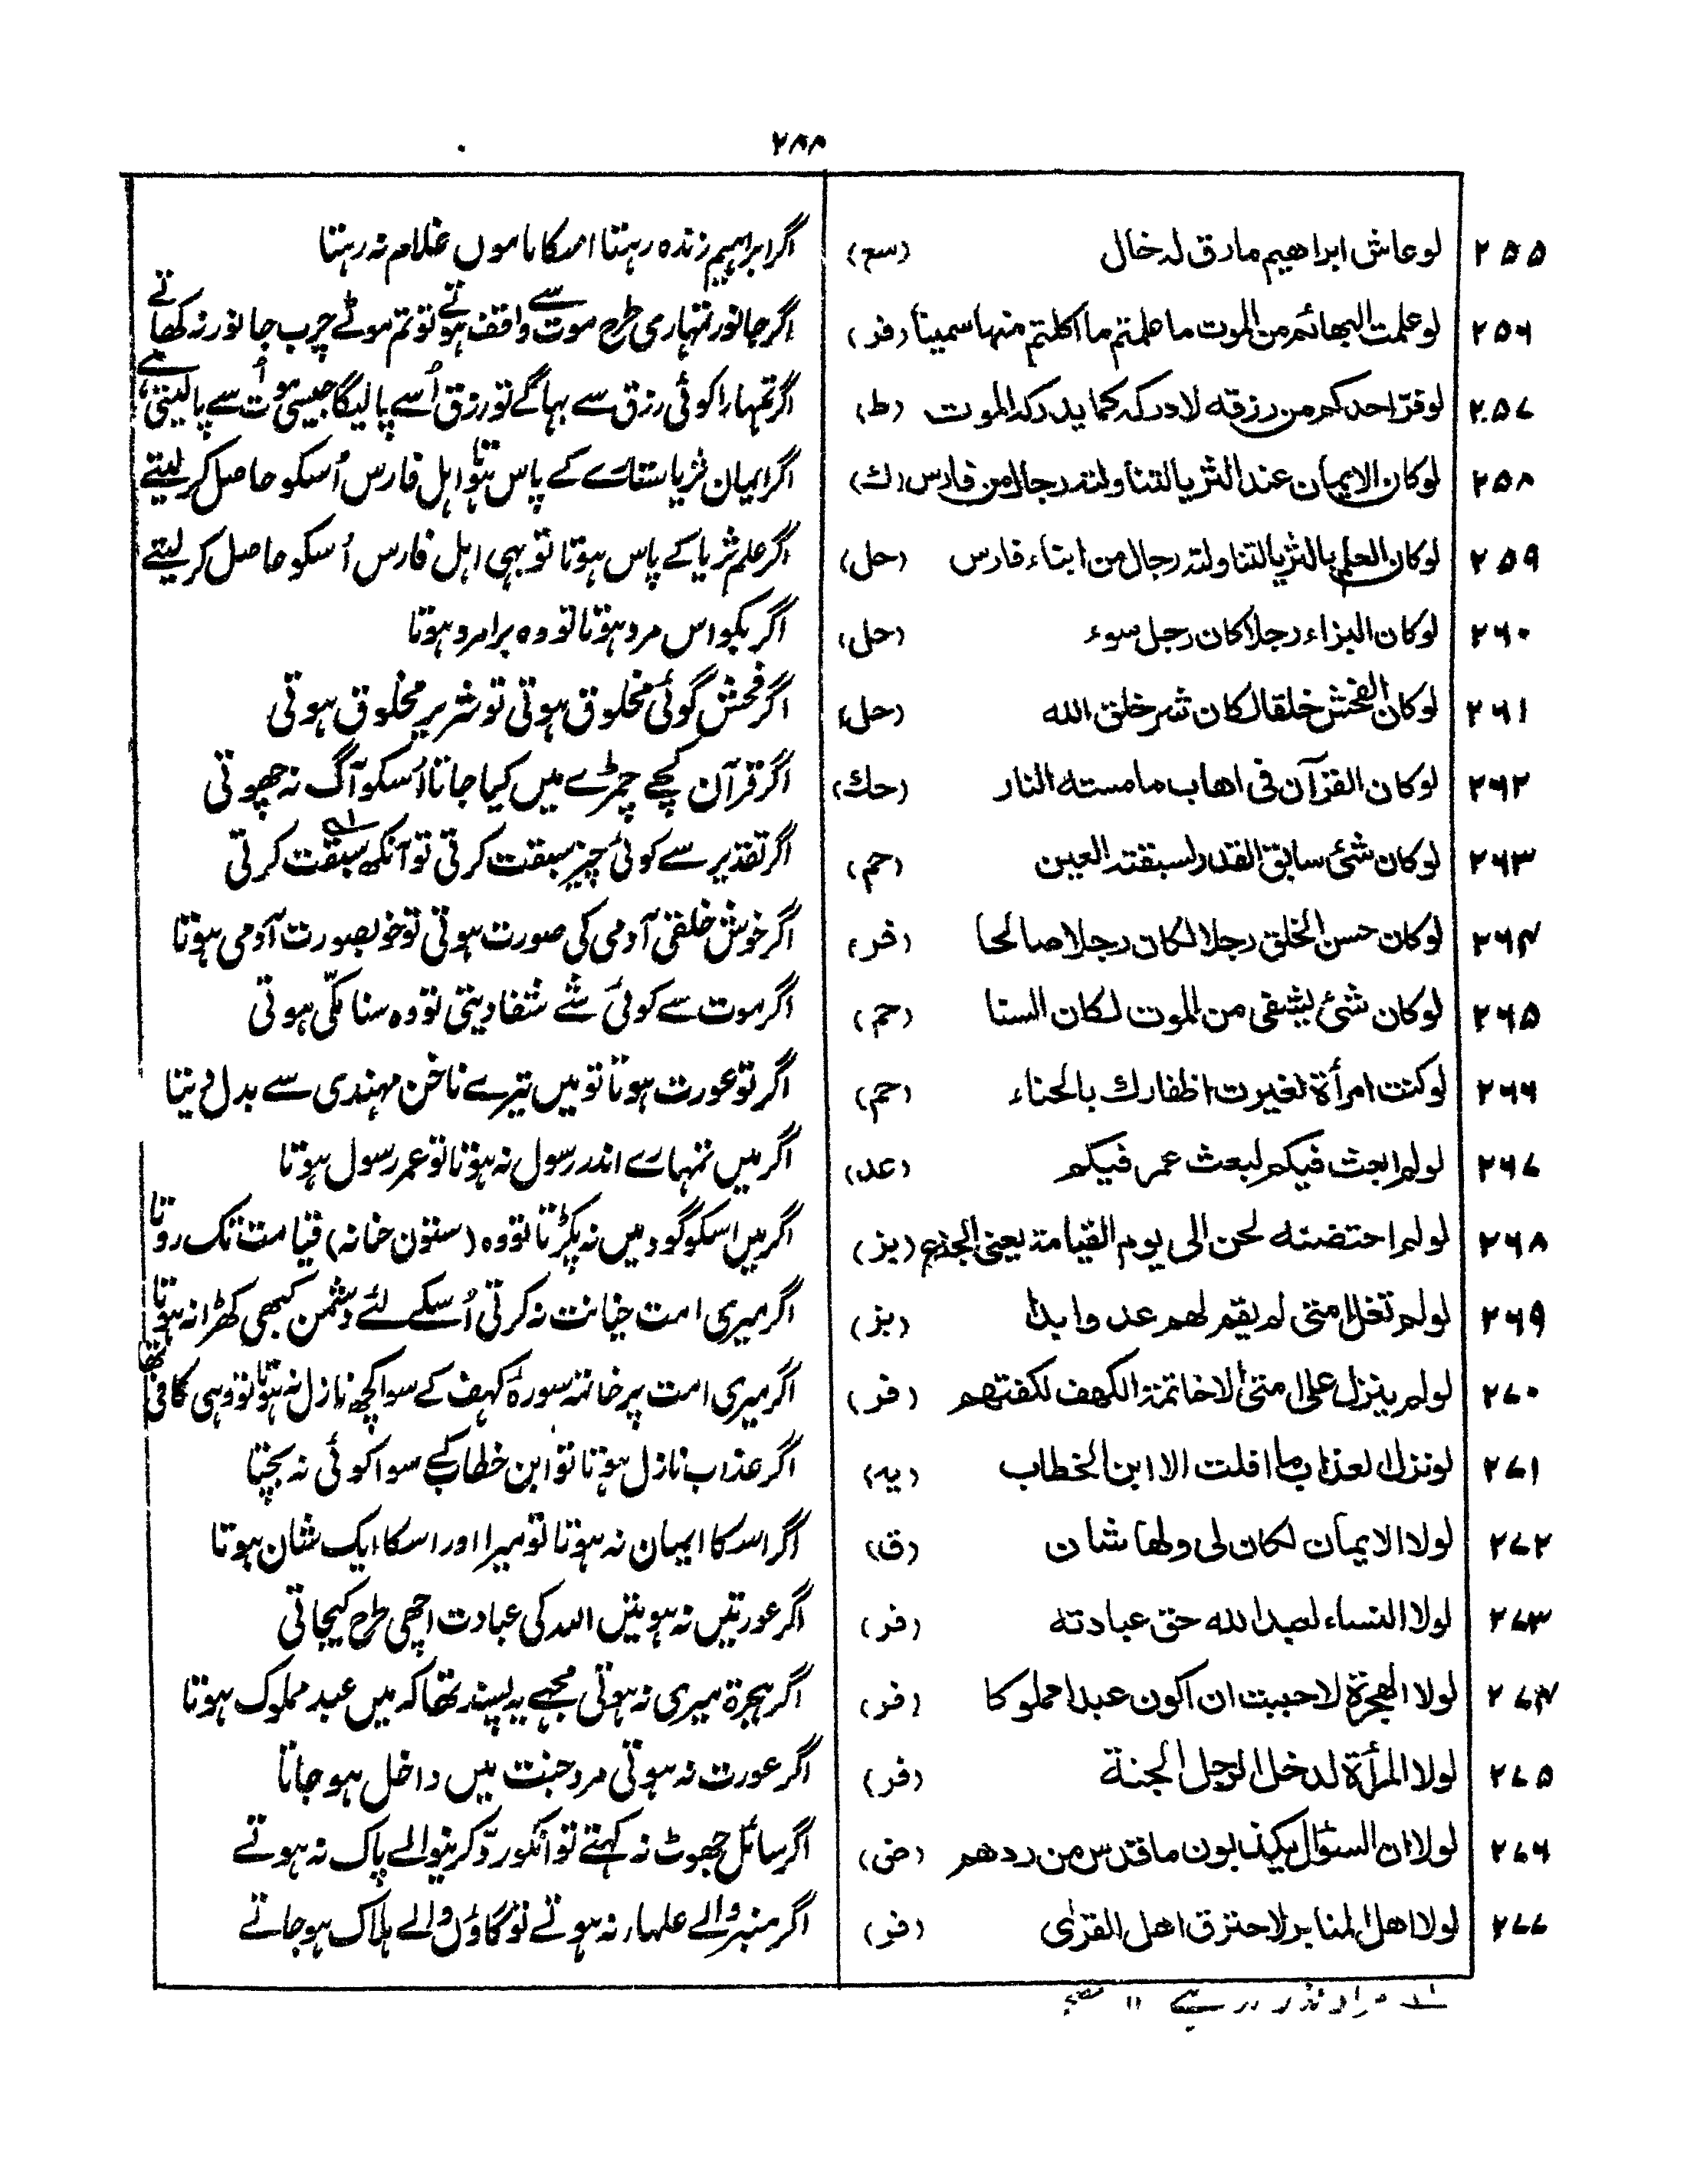 ۲۸۸
۲۵۵ لوعاش ابراهيم مارق له خال (سع) اگر ابراہیم زندہ رہتا اسکا ماموں غلام نہ رہتا
۲۵۶ لوعلمت البهائم من الموت ما علمتم ما اكلتم منها سمينا (فر) اگر جانور تمہاری طرح موت سے واقف ہوتے تو تم موٹے چرب جانور نہ کھاتے
۲۵۷ لوفرّ احدكم من رزقه لادركه كما يدركه الموت (ط) اگر تمہارا کوئی رزق سے بہاگے تو رزق اُسے پالیگا جیسی موت اُسے پالیتی ہے
۲۵۸ لوكان الايمان عند الثريا لتناولته رجال من فارس (ك) اگر ایمان ثریا ستارے کے پاس ہوتا اہل فارس اُسکو حاصل کرلیتے
۲۵۹ لوكان العلم بالثريا لتناولته رجال من ابناء فارس (حل) اگر علم ثریا کے پاس ہوتا تو بہی اہل فارس اُسکو حاصل کرلیتے
۲۶۰ لوكان البزاء رجلا كان رجل سوء (حل) اگر بکواس مرد ہوتا تو وہ برا مرد ہوتا
۲۶۱ لوكان الفحش خلقا لكان شر خلق الله (حل) اگر فحش گوئی مخلوق ہوتی تو شریر مخلوق ہوتی
۲۶۲ لوكان القرآن فى اهاب ما مسته النار (حك) اگر قرآن کچے چمڑے میں کیا جاتا اُسکو آگ نہ چھوتی
۲۶۳ لوكان شئ سابق القدر لسبقته العين (حم) اگر تقدیر سے کوئی چیز سبقت کرتی تو آنکھ سبقت کرتی
۲۶۴ لوكان حسن الخلق رجلا لكان رجلا صالحا (فر) اگر خوش خلقی آدمی کی صورت ہوتی تو خوبصورت آدمی ہوتا
۲۶۵ لوكان شئ يشفى من الموت لكان السنا (حم) اگر موت سے کوئی شے شفا دیتی تو وہ سنا مکّی ہوتی
۲۶۶ لوكنت امرأة لغيرت اظفارك بالحناء (حم) اگر تو عورت ہوتا تو میں تیرے ناخن مہندی سے بدل دیتا
۲۶۷ لولم ابعث فيكم لبعث عمر فيكم (عد) اگر میں تمہارے اندر رسول نہ ہوتا تو عمر رسول ہوتا
۲۶۸ لولم احتضنه لحن الى يوم القيامة يعنى الجذع (بز) اگر میں اسکو گود میں نہ پکڑتا تو وہ (ستون خانہ) قیامت تک روتا
۲۶۹ لولم تغل امتى لم يقم لهم عدو ابدا (بز) اگر میری امت خیانت نہ کرتی اُسکے لئے دشمن کبھی کھڑا نہ ہوتا
۲۷۰ لولم ينزل على امتى الا خاتمة الكهف لكفتهم (فر) اگر میری امت پر خاتمہ سورۂ کہف کے سوا کچھ نازل نہ ہوتا تو وہی کافی تھا
۲۷۱ لونزل العذاب ما افلت الا ابن الخطاب (يه) اگر عذاب نازل ہوتا تو ابن خطاب کے سوا کوئی نہ بچتا
۲۷۲ لولا الايمان لكان لى ولها شان (ق) اگر اسکا ایمان نہ ہوتا تو میرا اور اسکا ایک شان ہوتا
۲۷۳ لولا النساء لعبد الله حق عبادته (فر) اگر عورتیں نہ ہوتیں اللہ کی عبادت اچھی طرح کیجاتی
۲۷۴ لولا الهجرة لاحببت ان اكون عبدا مملوكا (فر) اگر ہجرۃ میری نہ ہوتی مجہے یہ پسند تھا کہ میں عبد مملوک ہوتا
۲۷۵ لولا المرأة لدخل الرجل الجنة (فر) اگر عورت نہ ہوتی مرد جنت میں داخل ہو جاتا
۲۷۶ لولا ان السؤال يكذبون ما قدس من ردهم (ض) اگر سائل جھوٹ نہ کہتے تو انکو ردّ کرنیوالے پاک نہ ہوتے
۲۷۷ لولا اهل المنابر لاحترق اهل القرى (فر) اگر منبر والے علماء نہ ہوتے تو گاؤں والے ہلاک ہوجاتے